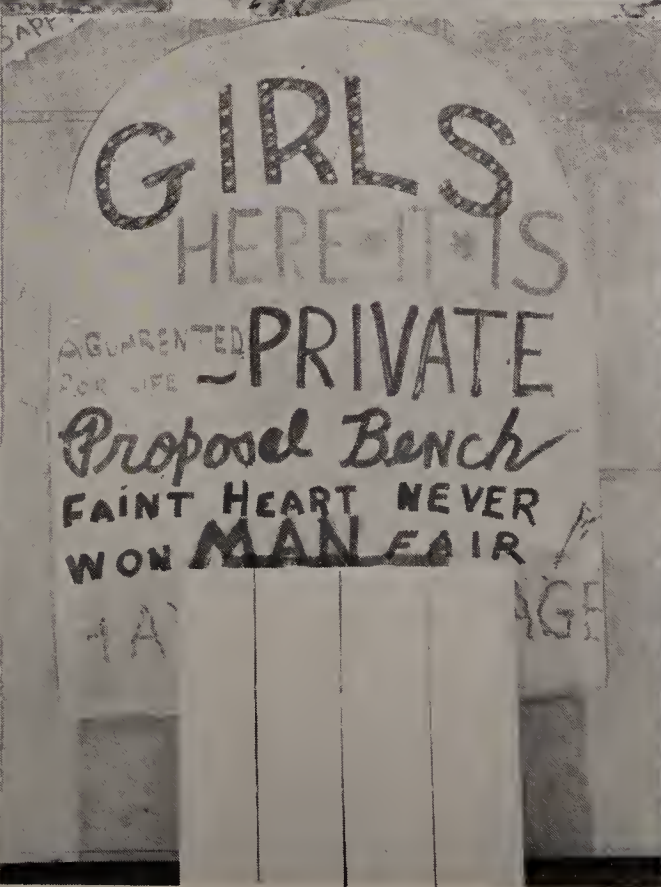 GIRLS
HERE • IT • IS
A GUARENTED
FOR LIFE
~PRIVATE
Proposal Bench
FAINT HEART NEVER
WON MAN FAIR